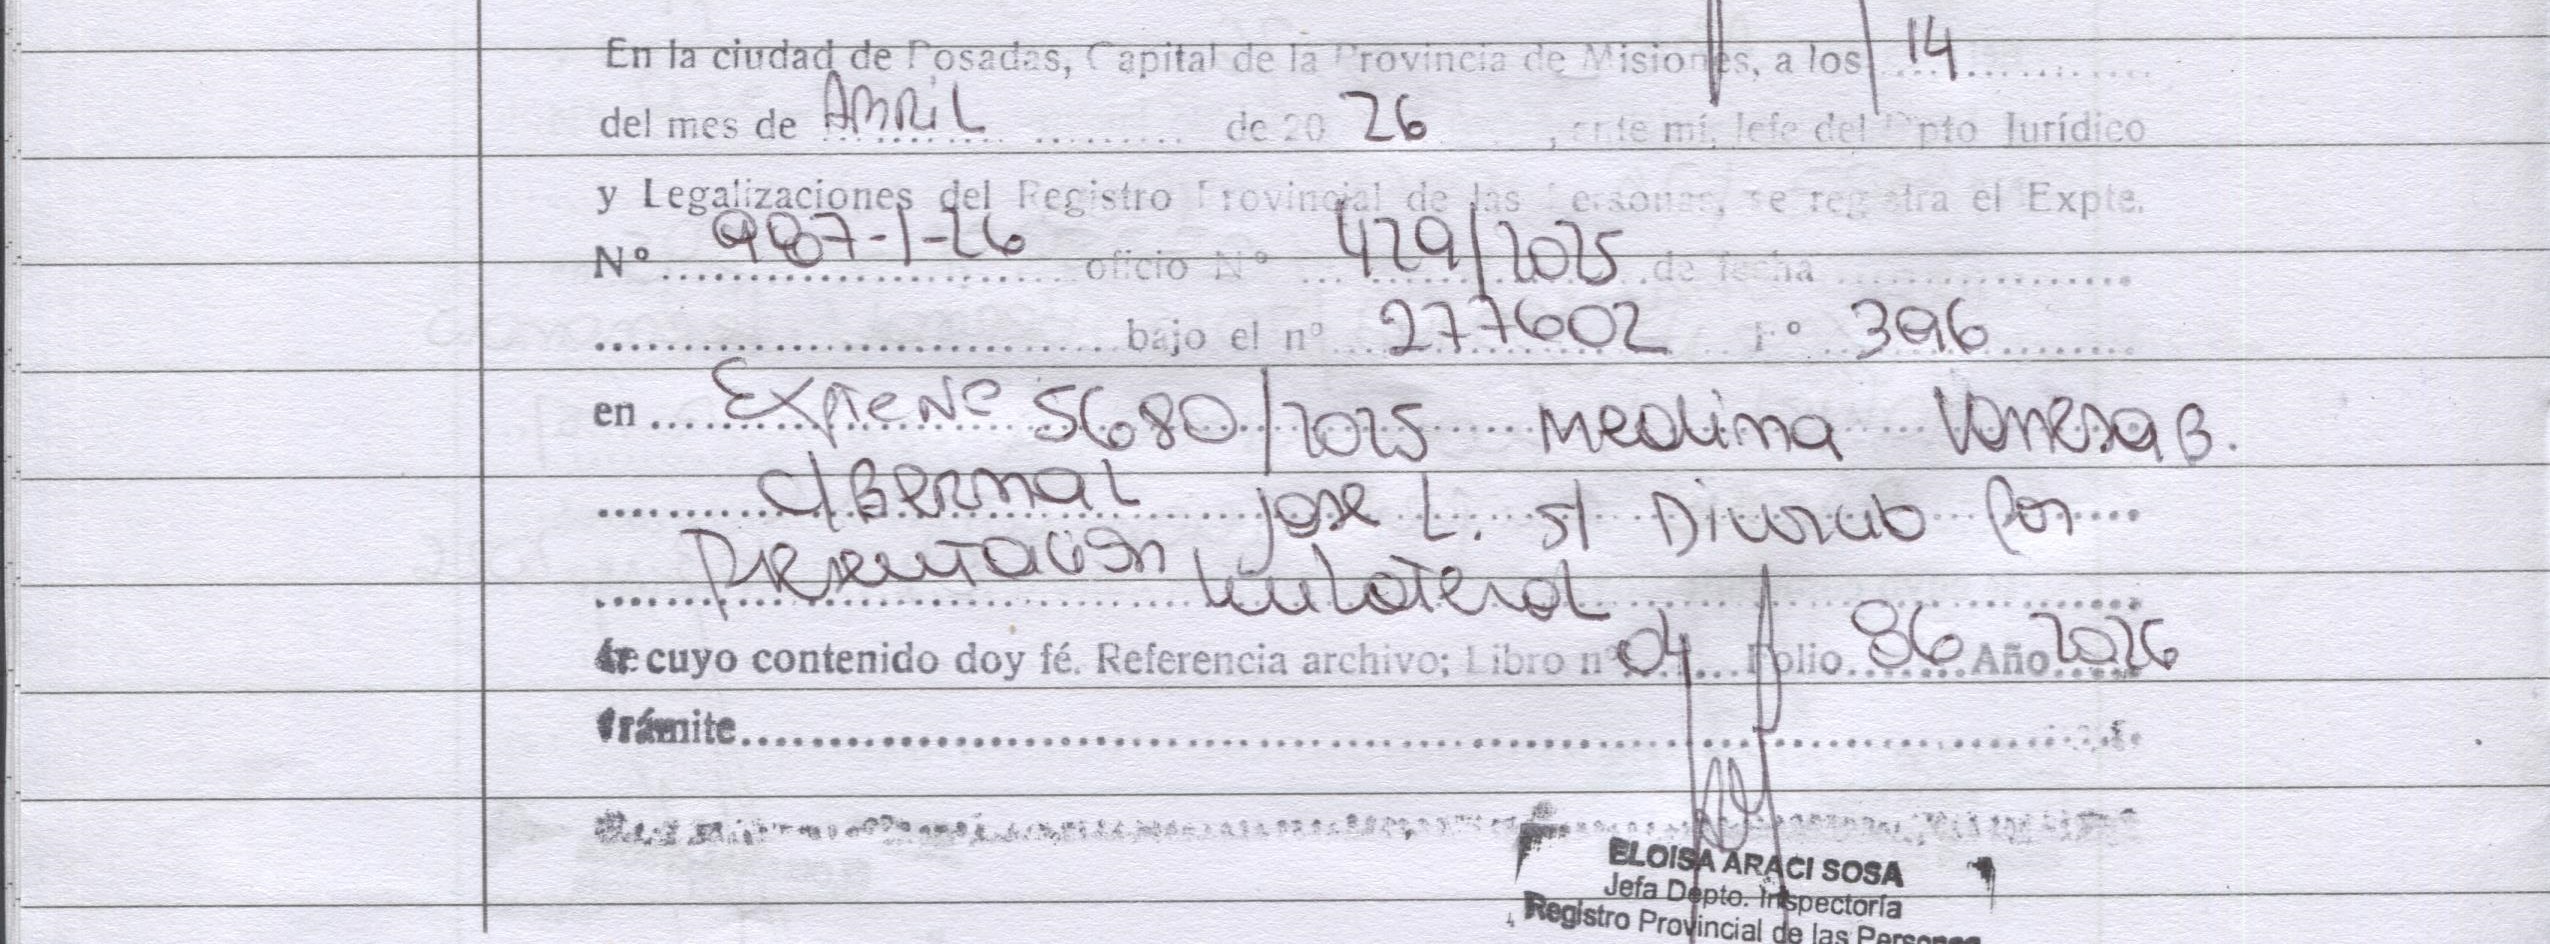 En la ciudad de Posadas, Capital de la Provincia de Misiones, a los 14
del mes de ABRIL de 20 26, ante mí, Jefe del Dpto Jurídico
y Legalizaciones del Registro Provincial de las Personas, se registra el Expte.
Nº 987-1-26 oficio Nº 429/2025 de fecha
bajo el nº 277602 Fº 396
en Expte Nº 5680/2025 Medina Vanesa B.
c/ Bernal Jose L. s/ Divorcio Por
Presentación Unilateral
de cuyo contenido doy fé. Referencia archivo; Libro nº 04 Folio 86 Año 2026
trámite
ELOISA ARACI SOSA
Jefa Depto. Inspectoría
Registro Provincial de las Personas